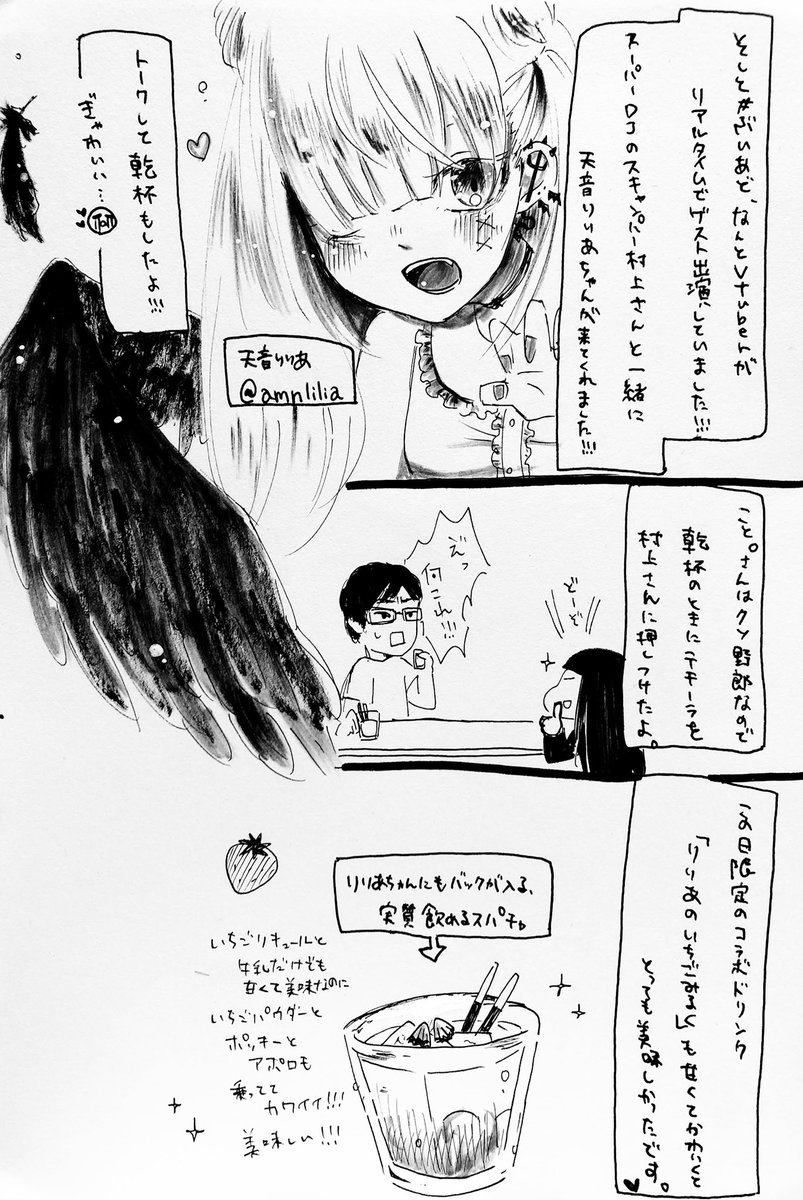 そして#ぶいあど、なんとVtuberが
リアルタイムでゲスト出演していました!!!
スーパーDJのスキャンパー村上さんと一緒に
天音りりあちゃんが来てくれました!!!
トークして乾杯もしたよ!!!
ぎゃわいい…
天音りりあ
@amnlilia
こと。さんはクソ野郎なので
乾杯のときにテキーラを
村上さんに押しつけたよ。
どーぞ
えっ
何これ!!!
この日限定のコラボドリンク
「りりあのいちごみるく」も甘くてかわいくて
とっても美味しかったです。
りりあちゃんにもバックが入る、
実質飲めるスパチャ
いちごリキュールと
牛乳だけでも
甘くて美味なのに
いちごパウダーと
ポッキーと
アポロも
乗ってて
カワイイ!!!
美味しい!!!